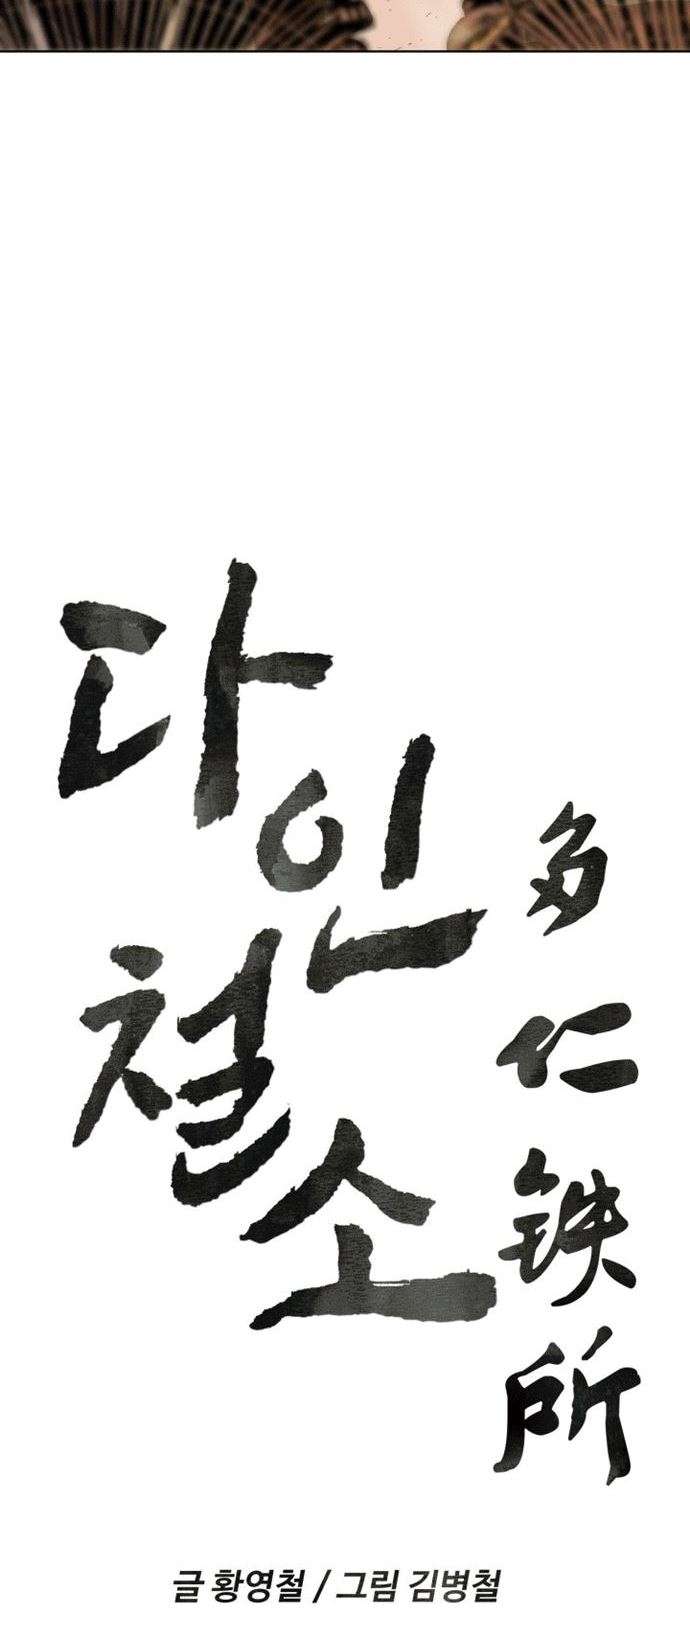 다인
철소
多仁鉄所
글 황영철 / 그림 김병철